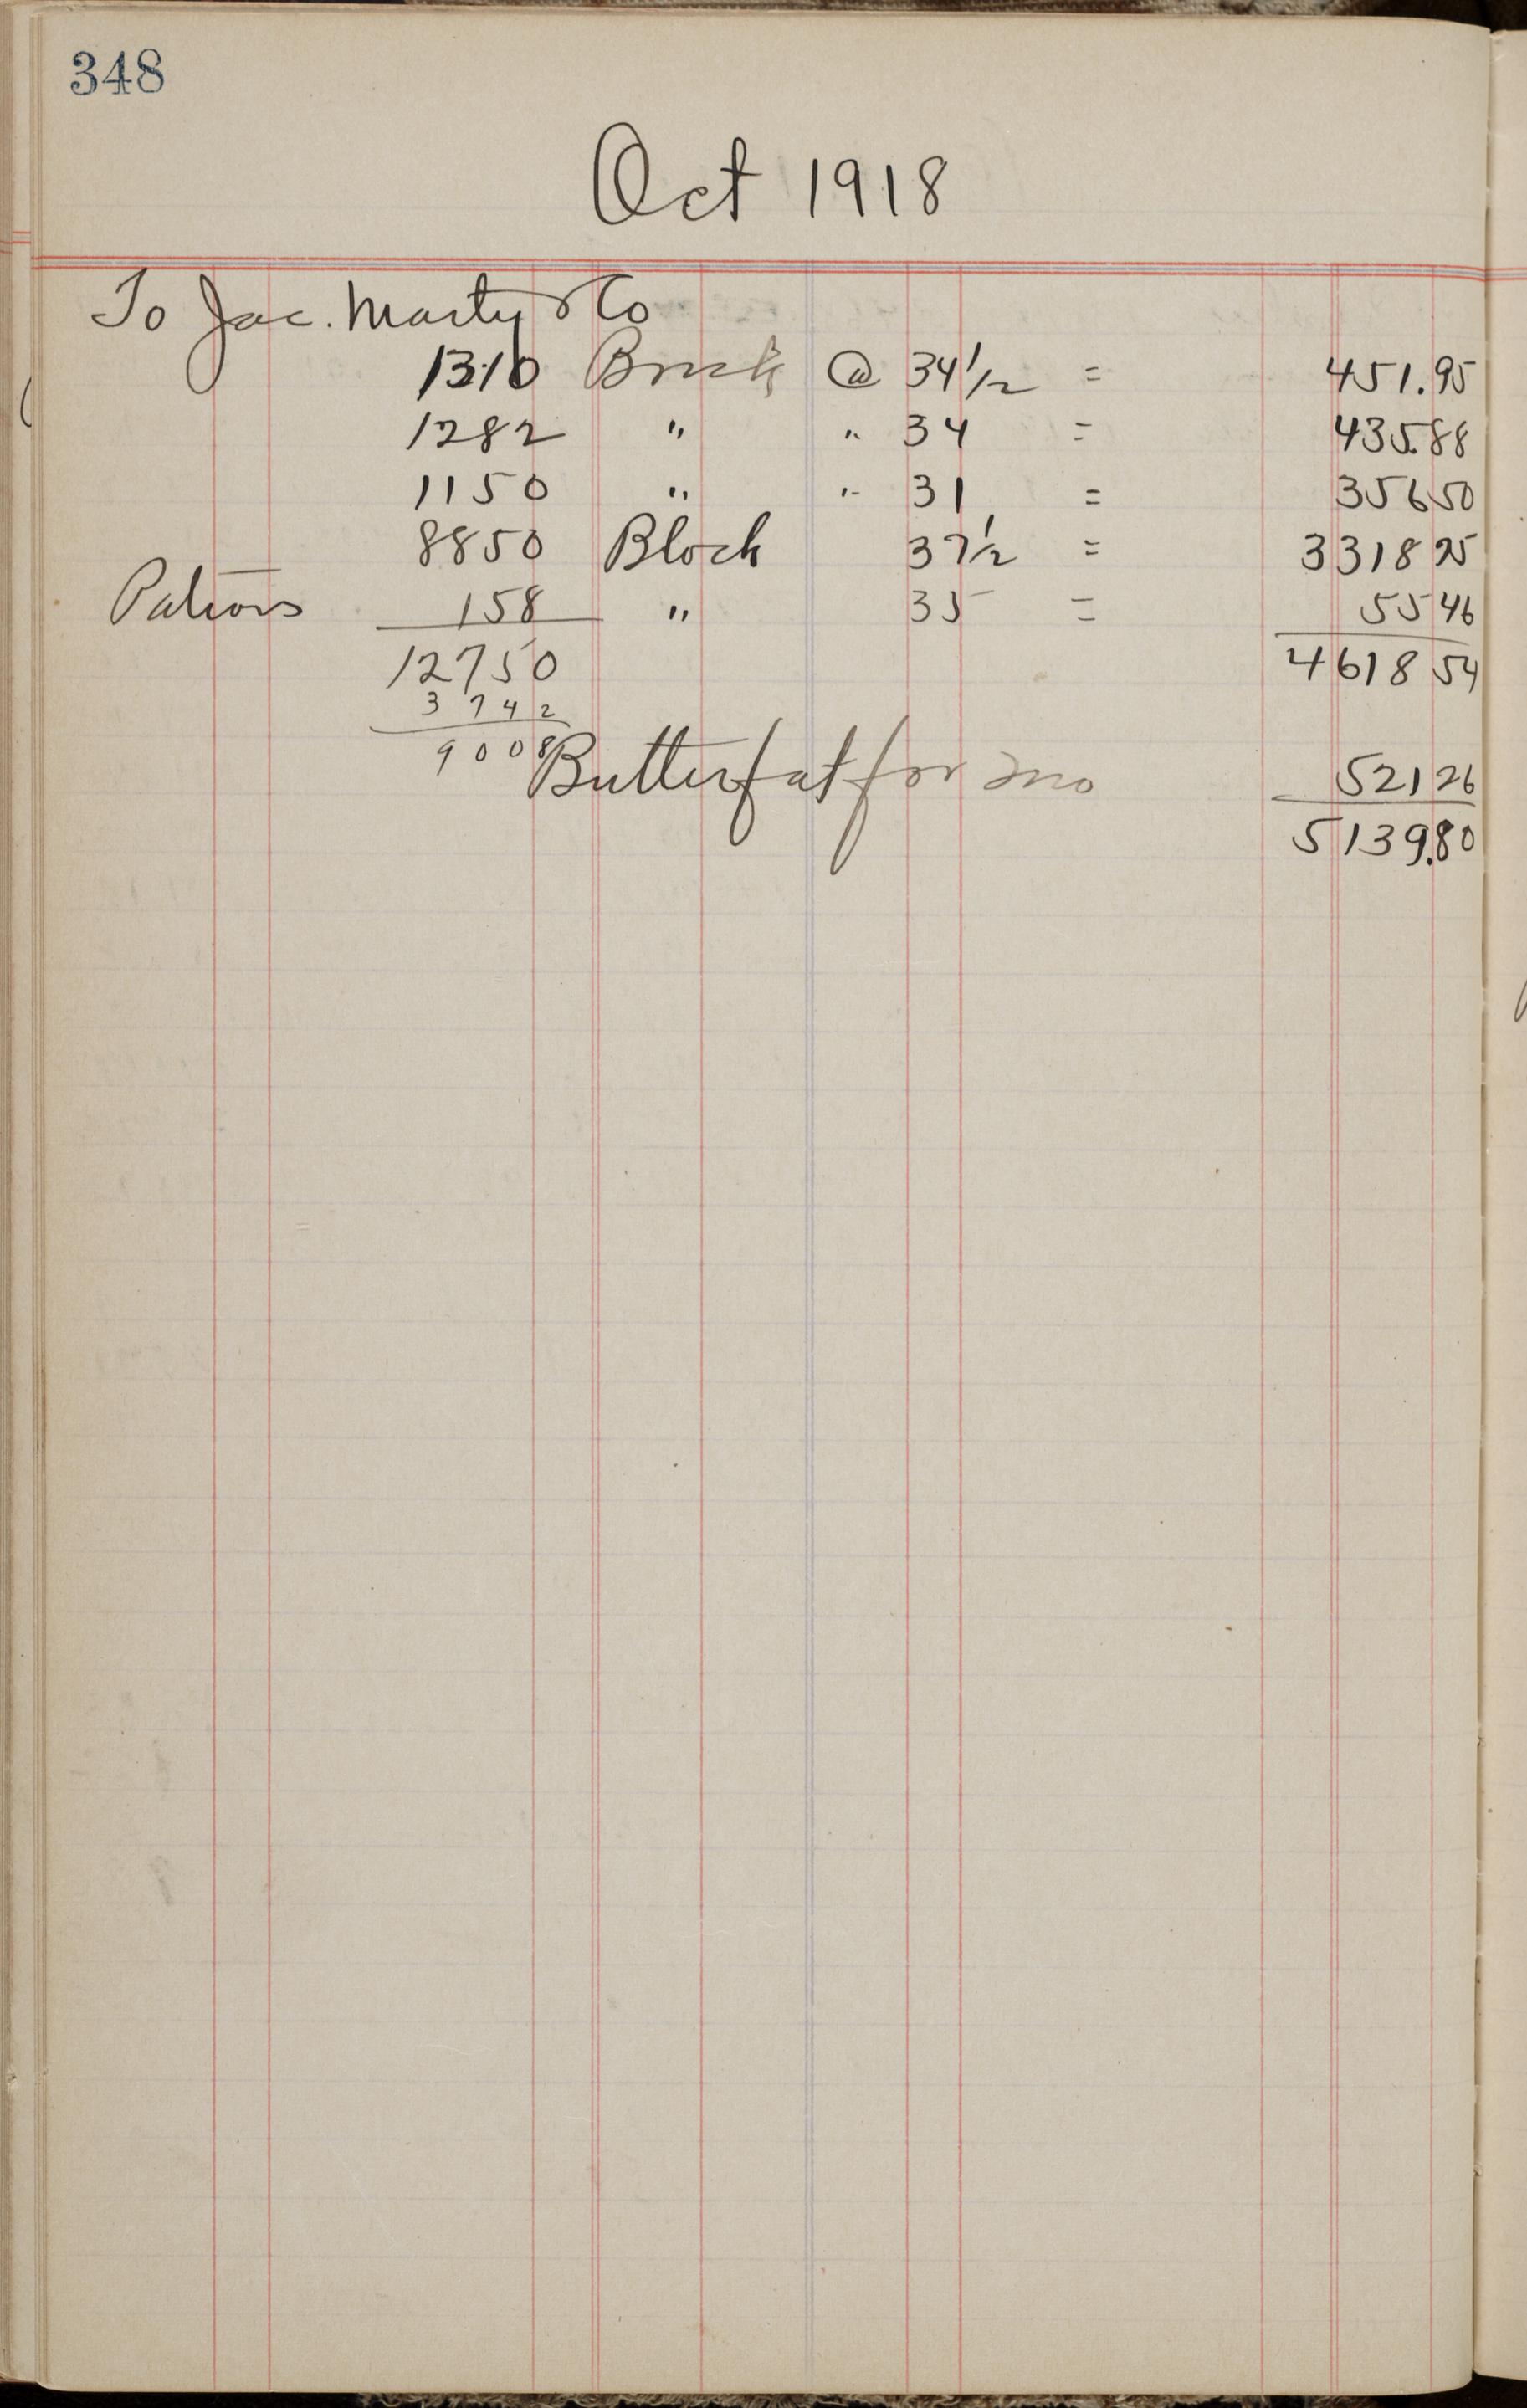 348
Oct 1918
To Jac. Marty & Co
1310 Brick @ 34 1/2 = 451.95
1282 " " 34 = 435.88
1150 " " 31 = 356 50
8850 Block 37 1/2 = 3318 75
Patrons 158 " 35 = 55 46
12750 4618 54
3742
9008
Butterfat for mo 521 26
5139.80